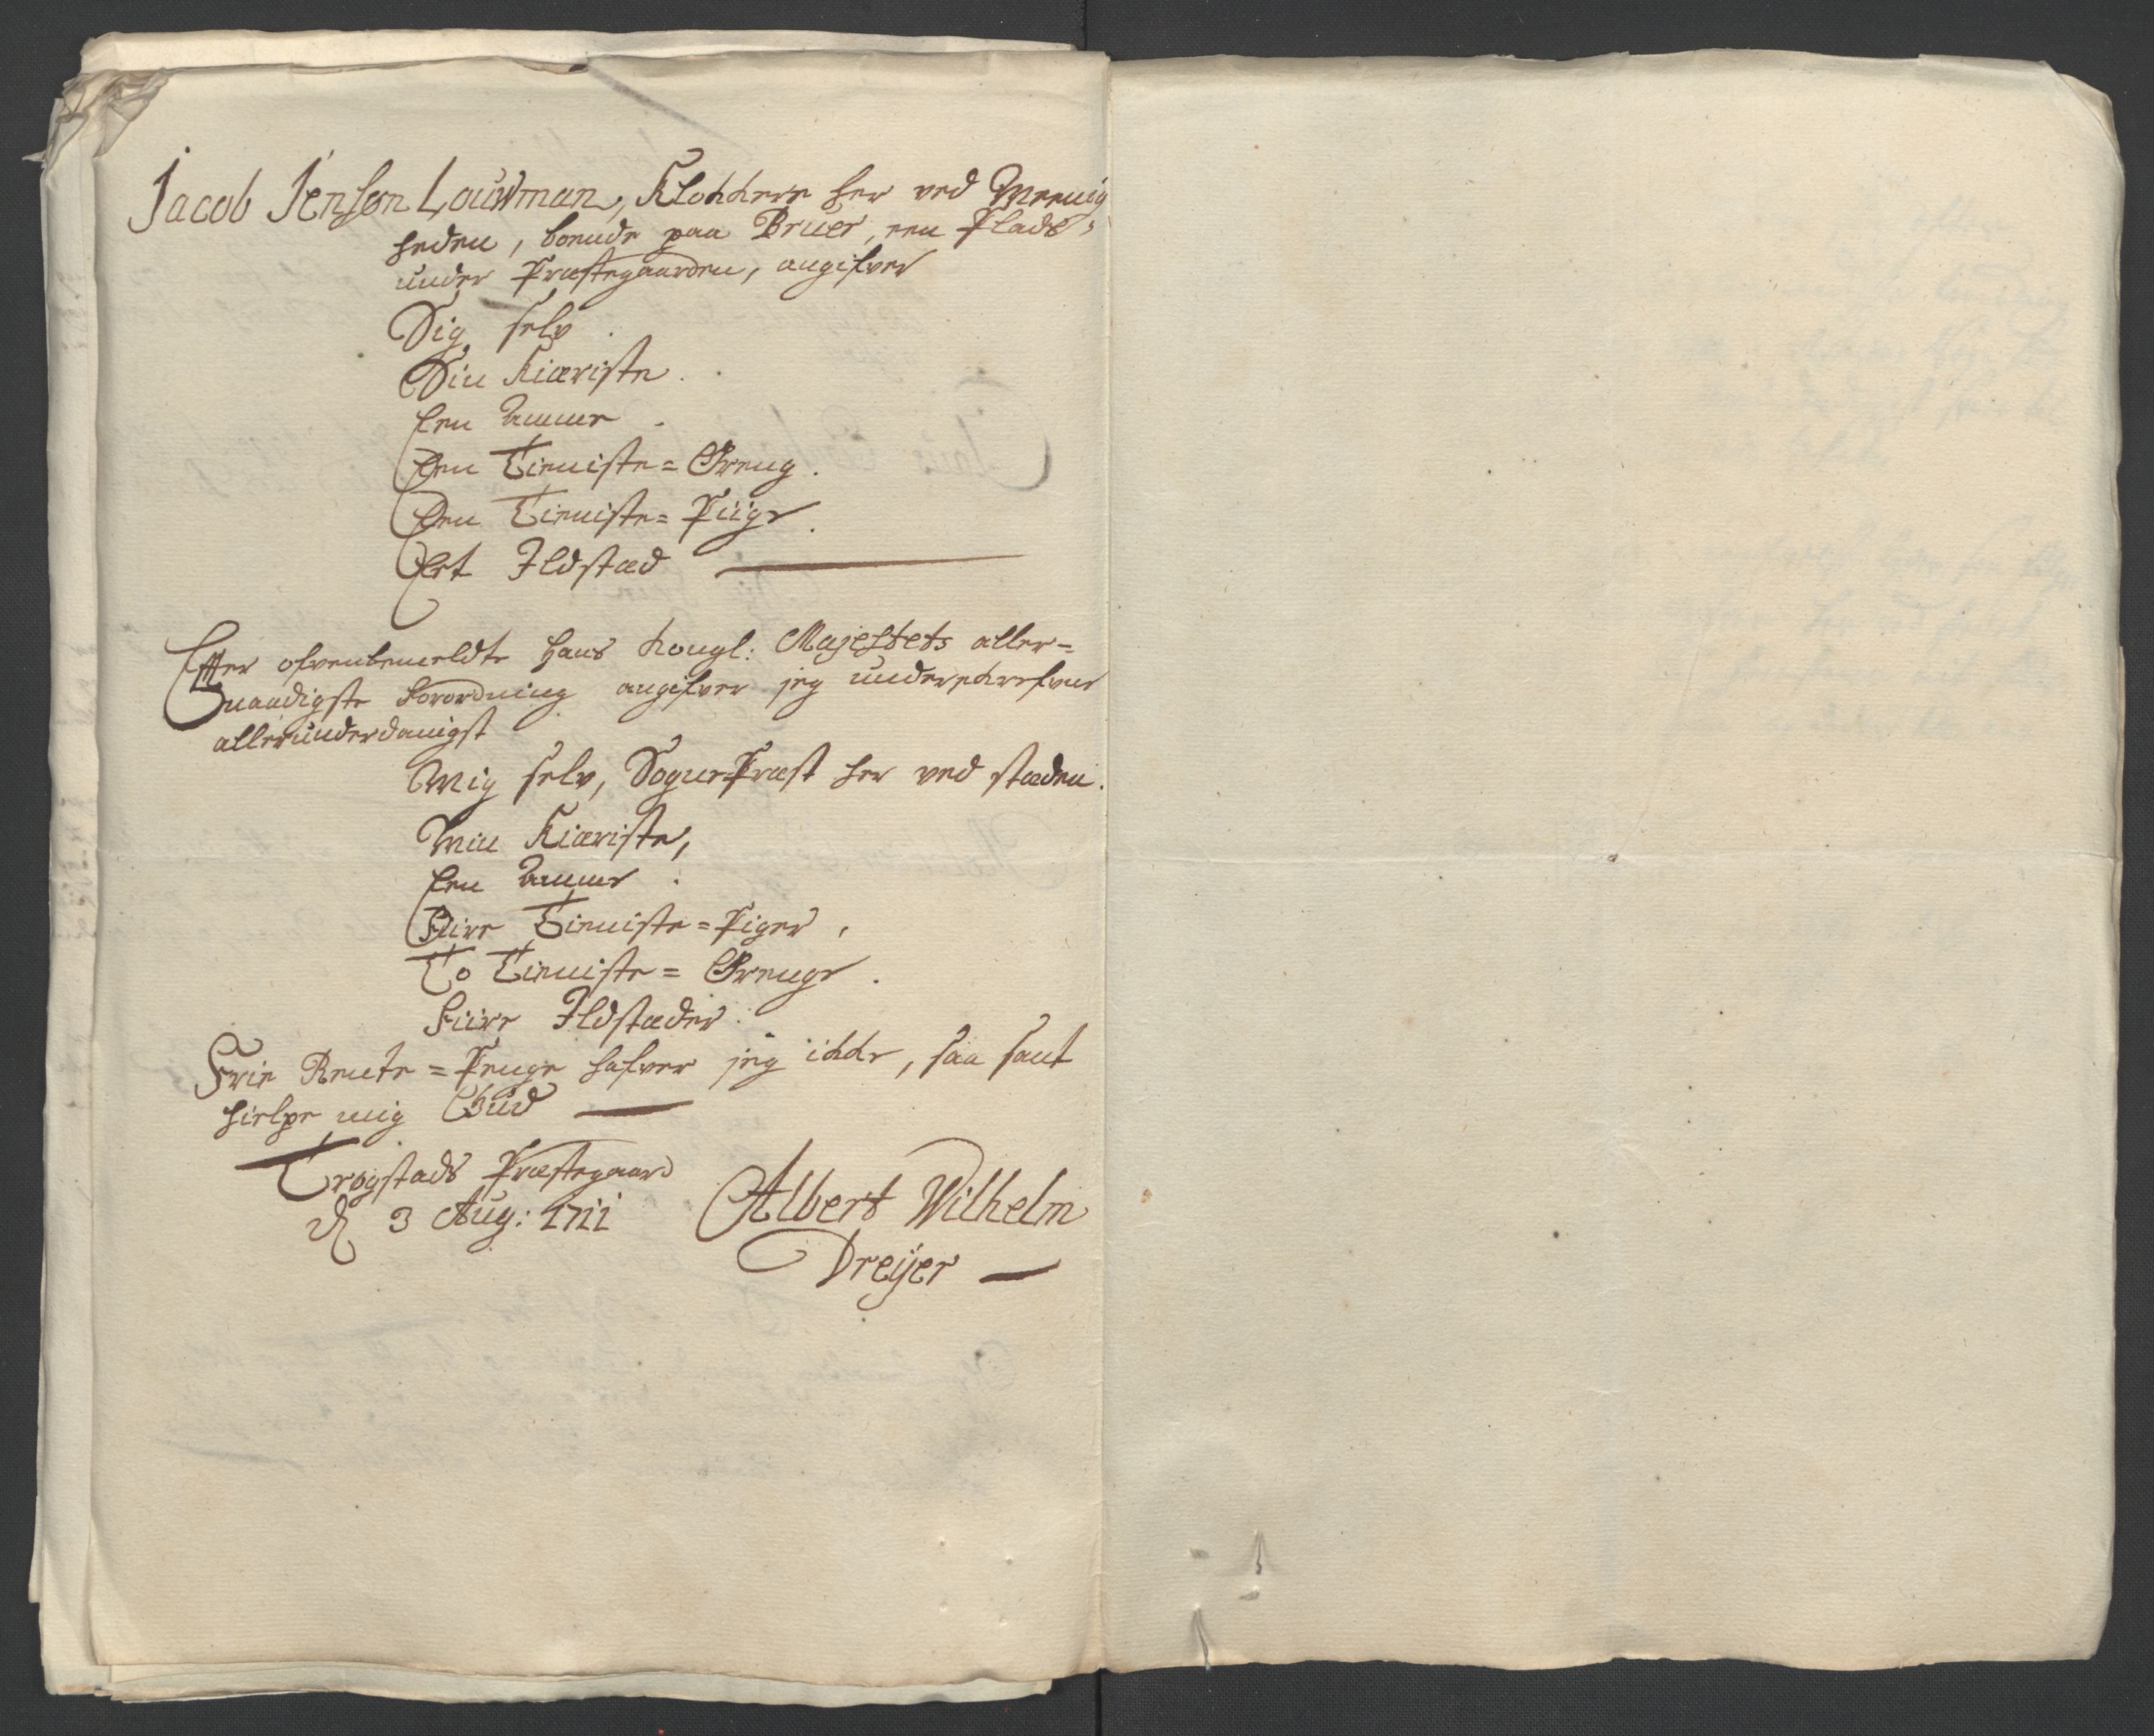 Jacob Jensøn Louwman, Klokkere her ved Meenig
heden, boende paa Bruer, een Plads,
under Præstegaarden, angifver
Sig selv.
Sin Kiæriste.
Een Amme.
Een Tieniste=Dreng.
Een Tieniste=Piige.
Eet Ildstæd
Efter ofvenbemeldte Hans Kongl: Majestets aller=
Gnaadigste Forordning angifver jeg underskrefvne
allerunderdanigst
Mig selv, SognePræst her ved stæden.
Min Kiæriste,
Een Amme.
Fiire Tieniste=Piger,
To Tieniste=Drenge.
Fiire Ildstæder.
Frie Rente=Penge hafver jeg ikke, saa sant
hielpe mig Gud
Trøgstads Præstegaard
d 3 Aug: 1711
Albert Wilhelm
Dreÿer